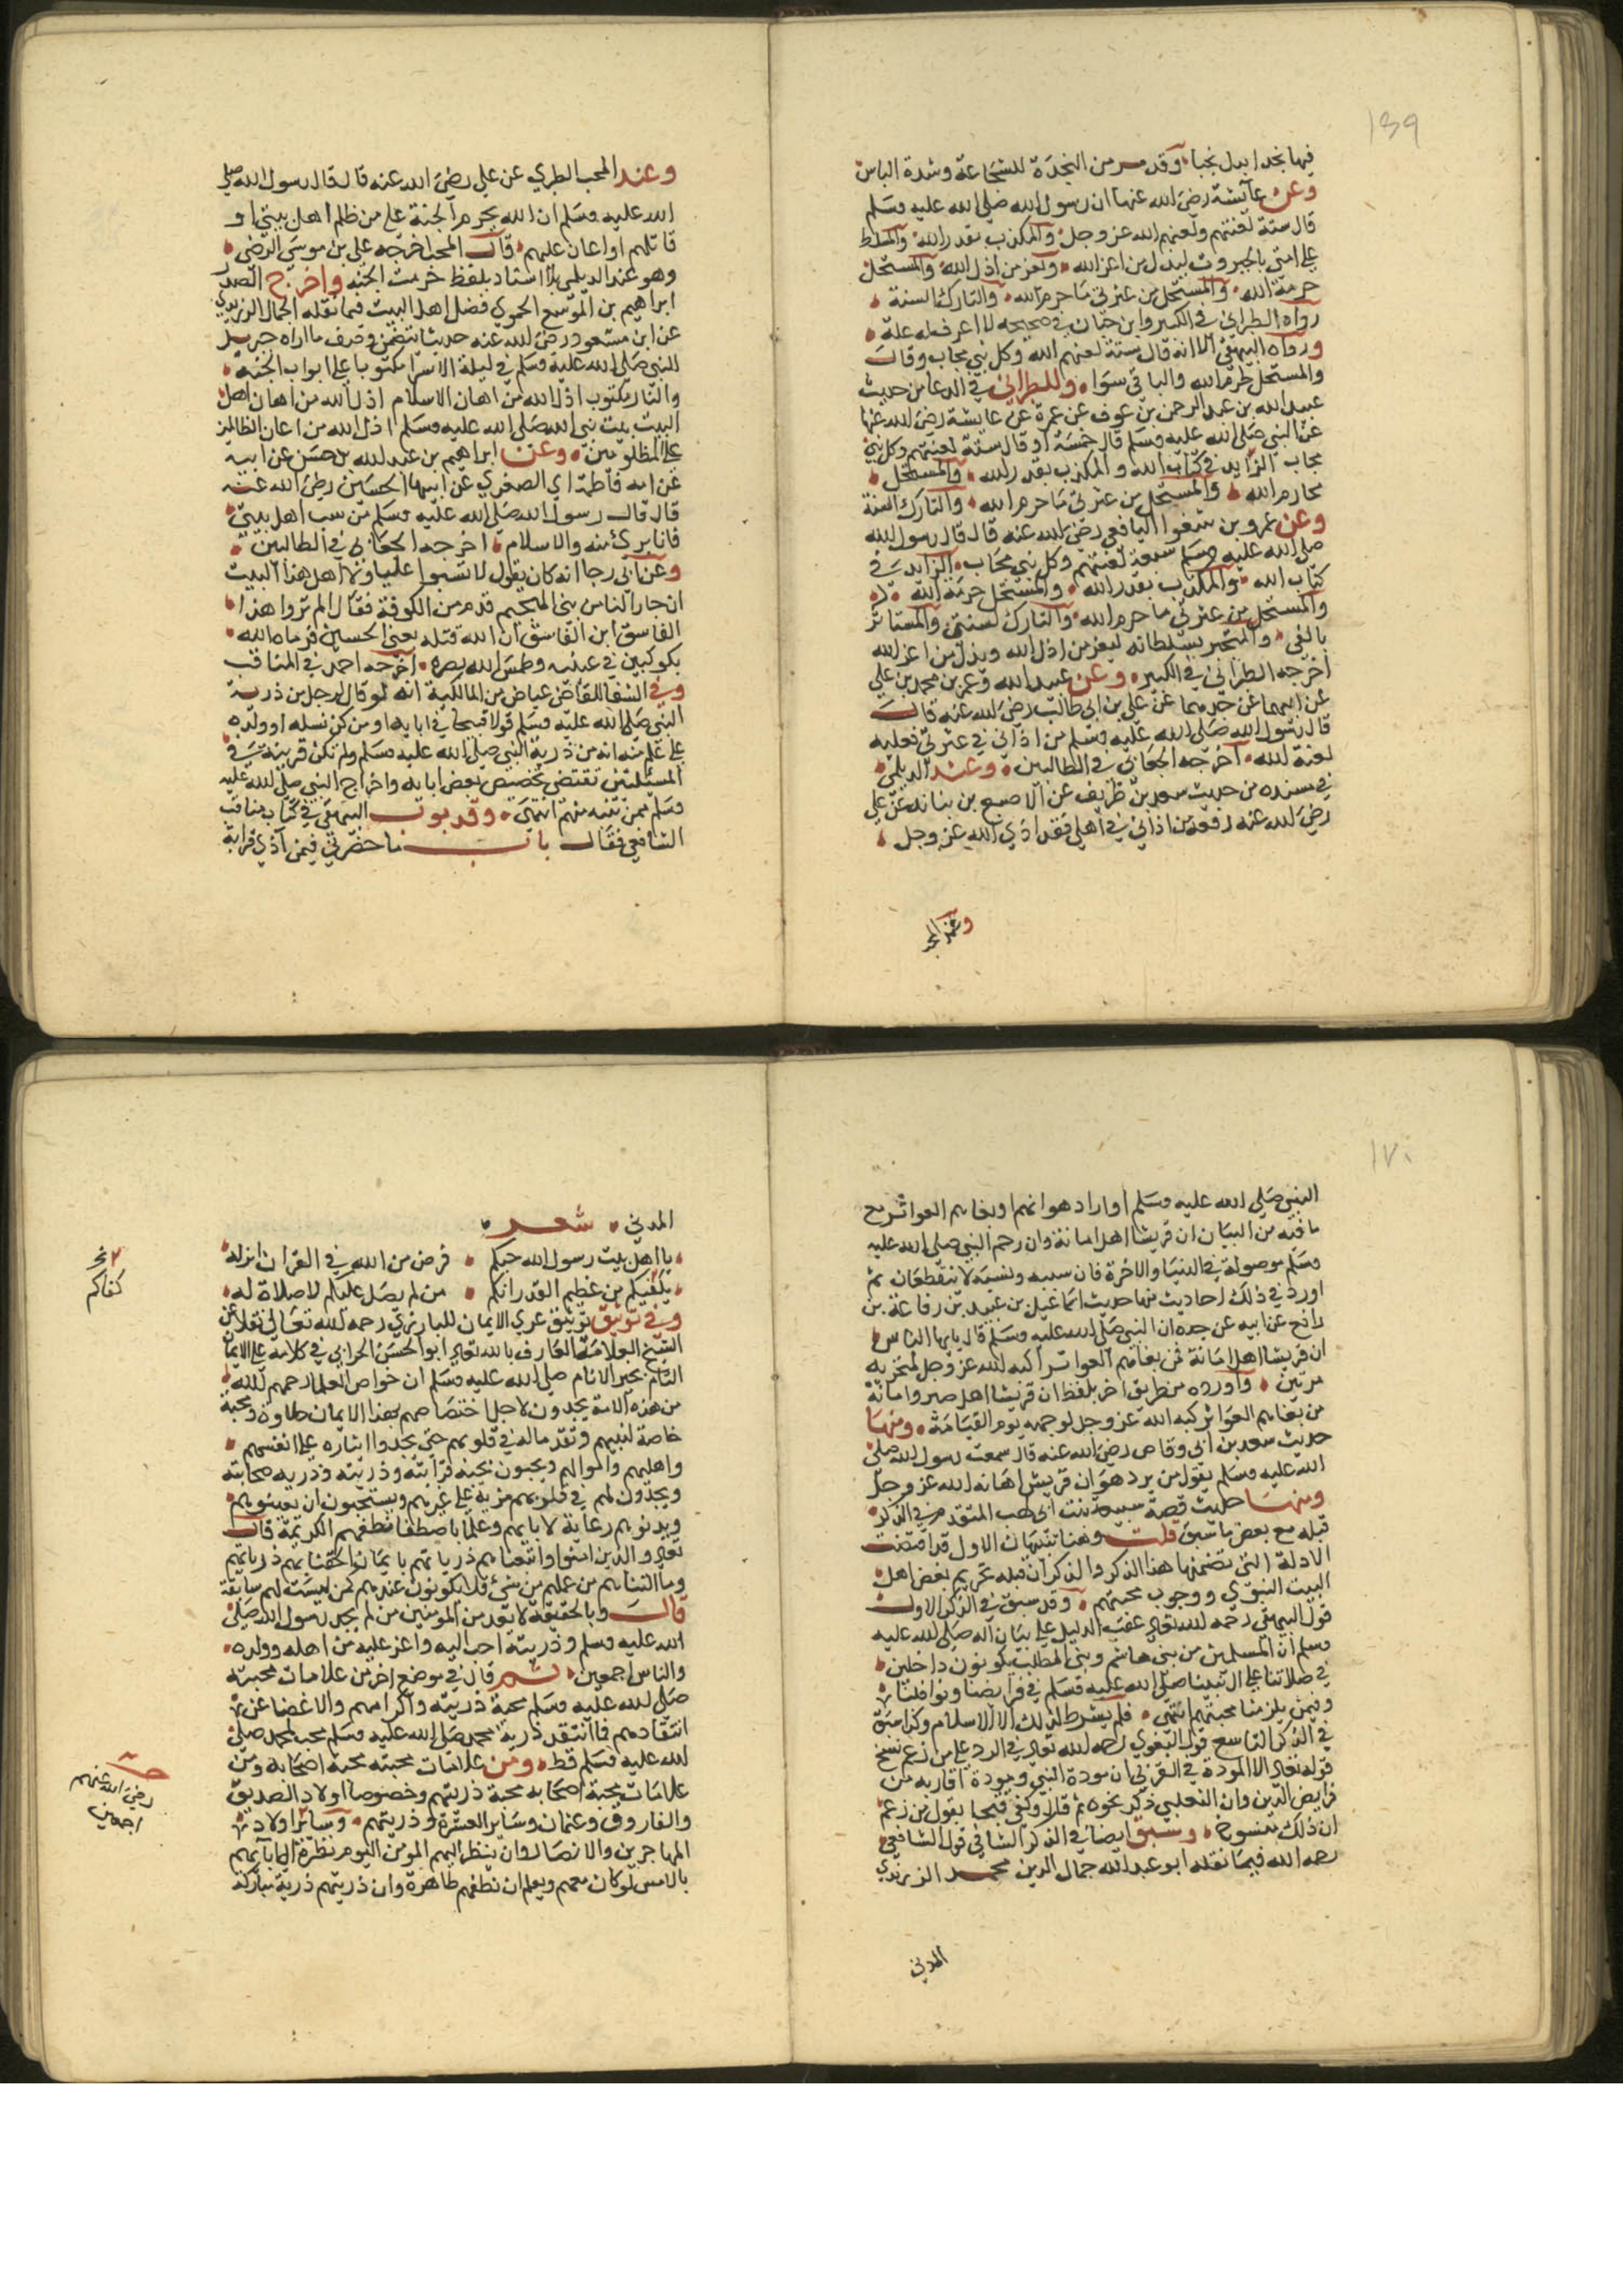 ١٦٩
فيها نجدا بدل نجبا، وقد مر من النجدة للشجاعة وشدة الباس
وعن عائشة رضي الله عنها ان رسول الله صلى الله عليه وسلم
قال ستة لعنتهم ولعنهم الله عز وجل، والمكذب بقدر الله، والمتسلط
على امتي بالجبروت ليذل من اعز الله، ويعز من اذل الله، والمستحل
حرمة الله، والمستحل من عترتي ما حرم الله، والتارك السنة،
رواه الطبراني في الكبير وابن حبان في صحيحه لا اعرف له علة،
ورواه البيهقي الا انه قال ستة لعنهم الله وكل نبي مجاب وقال
والمستحل لحرم الله والباقي سوا، وللطبراني في الدعا من حديث
عبيد الله بن عبد الرحمن بن عوف عن عمرة عن عايشة رضي الله عنها
عن النبي صلى الله عليه وسلم قال خمسة او قال ستة لعنتهم وكل نبي
مجاب الزايد في كتاب الله والمكذب بقدر الله، والمستحل،
محارم الله، والمستحل من عترتي ما حرم الله، والتارك السنة
وعن عمرو بن شغوا اليافعي رضي الله عنه قال قال رسول الله
صلى الله عليه وسلم سبعة لعنتهم وكل نبي مجاب، الزايد في
كتاب الله، والمكذب بقدر الله، والمستحل حرمة الله،
والمستحل من عترتي ما حرم الله، والتارك لسنتي والمستاثر
بالفي، والمتجبر بسلطانه ليعز من اذل الله ويذل من اعز الله
اخرجه الطبراني في الكبير، وعن عبيد الله وعمر بن محمد بن علي
عن ابيهما عن جدهما عن علي بن ابي طالب رضي الله عنه قال
قال رسول الله صلى الله عليه وسلم من اذاني في عترتي فعليه
لعنة الله، اخرجه الجعابي في الطالبين، وعند الديلمي
في مسنده من حديث سعد بن ظريف عن الاصبغ بن نباته عن علي
رضي الله عنه رفعه من اذاني في اهلي فقد اذي الله عز وجل،
وعند المحب
وعند المحب الطبري عن علي رضي الله عنه قال قال رسول الله صلى
الله عليه وسلم ان الله حرم الجنة على من ظلم اهل بيتي او
قاتلهم او اعان عليهم، قال المحب اخرجه علي بن موسى الرضى،
وهو عند الديلمي بلا اسناد بلفظ حرمت الجنة واخرج الصدر
ابراهيم بن المؤيد الحموي فضل اهل البيت فيما نقله الجمال الزرندي
عن ابن مسعود رضي الله عنه حديثا يتضمن وصف ما اراه جبريل
للنبي صلى الله عليه وسلم في ليلة الاسرا مكتوبا على ابواب الجنة،
والنار مكتوب اذل الله من اهان الاسلام اذل الله من اهان اهل
البيت بيت نبي الله صلى الله عليه وسلم اذل الله من اعان الظالمين
على المظلومين، وعن ابراهيم بن عبد الله بن حسن عن ابيه
عن امه فاطمة اي الصغرى عن ابيها الحسين رضي الله عنه
قال قال رسول الله صلى الله عليه وسلم من سب اهل بيتي،
فانا بريء منه والاسلام، اخرجه الجعابي في الطالبين،
وعن ابي رجا انه كان يقول لا تسبوا عليا ولا اهل هذا البيت
ان جارا لنا من بني الهجيم قدم من الكوفة فقال الم تروا هذا،
الفاسق ابن الفاسق ان الله قتله يعني الحسين فرماه الله،
بكوكبين في عينيه وطمس الله بصره، اخرجه احمد في المناقب
وفي الشفا للقاضي عياض من المالكية انه لو قال لرجل من ذرية
النبي صلى الله عليه وسلم قولا قبيحا في ابايه او من نسله او ولده
على علم منه انه من ذرية النبي صلى الله عليه وسلم ولم تكن قرينة في
المسئلتين تقتضي تخصيص بعض ابايه واخراج النبي صلى الله عليه
وسلم ممن سبه منهم انتهى، وقد بوب البيهقي في كتاب مناقب
الشافعي فقال باب ما حضرني فيمن اذي قرابة
١٧٠
النبي صلى الله عليه وسلم او اراد هوانهم او بغاهم العواثر مع
ما فيه من البيان ان قريشا اهل امانة وان رحم النبي صلى الله عليه
وسلم موصولة في الدنيا والاخرة فان سببه ونسبه لا ينقطعان ثم
اورد في ذلك احاديث منها حديث اسماعيل بن عبيد بن رفاعة بن
رافع عن ابيه عن جده ان النبي صلى الله عليه وسلم قال يا ايها الناس
ان قريشا اهل امانة فمن بغاهم العواثر اكبه الله عز وجل لمنخريه
مرتين، واورده من طريق اخر بلفظ ان قريشا اهل صبر وامانة
من بغاهم العواثر كبه الله عز وجل لوجهه يوم القيامة، ومنها
حديث سعد بن ابي وقاص رضي الله عنه قال سمعت رسول الله صلى
الله عليه وسلم يقول من يرد هوان قريش اهانه الله عز وجل
ومنها حديث قصة سبيعة بنت ابي لهب المتقدم في الذكر
قبله مع بعض ما سبق قلت وهنا تنبيهات الاول قد اقتضت
الادلة التي تضمنها هذا الذكر والذكر ان قبله تحريم بغض اهل
البيت النبوي ووجوب محبتهم، وقد سبق في الذكر الاول
قول البيهقي رحمه الله تعالى عقب الدليل على بيان اله صلى الله عليه
وسلم ان المسلمين من بني هاشم وبني المطلب يكونون داخلين،
في صلاتنا على ال نبينا صلى الله عليه وسلم في فرايضنا ونوافلنا
وفيمن يلزمنا محبتهم انتهى، فلم يشترط لذلك الا الاسلام وكذا سبق
في الذكر التاسع قول البغوي رحمه الله تعالى في الرد على من زعم نسخ
قوله تعالى الا المودة في القربى ان مودة النبي ومودة اقاربه من
فرايض الدين وان الثعلبي ذكر نحوه ثم قال وكفى قبحا بقول من زعم
ان ذلك منسوخ، وسبق ايضا في الذكر الثاني قول الشافعي
رحمه الله فيما نقله ابو عبد الله جمال الدين محمد الزرندي
المدني
المدني، شعر،
يا اهل بيت رسول الله حبكم، فرض من الله في القران انزله
يكفيكم من عظيم القدر انكم، من لم يصل عليكم لا صلاة له،
كفاكم
وفي توثيق عرى الايمان للبارزي رحمه الله تعالى نقلا عن
الشيخ العلامة العارف بالله تعالى ابو الحسن الحرالي في كلامه على الايمان
التام بخير الانام صلى الله عليه وسلم ان خواص العلما رحمهم الله،
من هذه الامة يجدون لاجل اختصاصهم بهذا الايمان حلاوة ومحبة
خاصة لنبيهم وتقدما له في قلوبهم حتى يجدوا ايثاره على انفسهم،
واهليهم واموالهم ويحبون بحبه قرابته وذريته وذريه صحابته
ويجدون لهم في قلوبهم مزية على غيرهم ويستحبون ان يعينوهم،
ويدنوهم رعاية لابايهم وعلما باصطفا نطفهم الكريمة قال
تعالى والذين امنوا واتبعناهم ذرياتهم بايمان الحقنا بهم ذرياتهم
وما التناهم من عملهم من شيء فلا يكونون عندهم كمن ليست لهم سابقة
قال وبالحقيقة لا يعد من المؤمنين من لم يجد رسول الله صلى
الله عليه وسلم وذريته احب اليه واعز عليه من اهله وولده،
والناس اجمعين، ثم قال في موضع اخر من علامات محبته
صلى الله عليه وسلم محبة ذريته واكرامهم والاغضا عن
انتقادهم فما انتقد ذرية محمد صلى الله عليه وسلم محب لمحمد صلى
الله عليه وسلم قط، ومن علامات محبته محبة اصحابه ومن
علامات محبة اصحابه محبة ذريتهم وخصوصا اولاد الصديق
والفاروق وعثمان وسائر العشرة وذريتهم، وسائر اولاد
المهاجرين والانصار وان ينظر اليهم المؤمن اليوم نظره الى ابائهم
بالامس لو كان معهم ويعلم ان نطفهم طاهرة وان ذريتهم ذرية مباركة
رضي الله عنهم
اجمعين